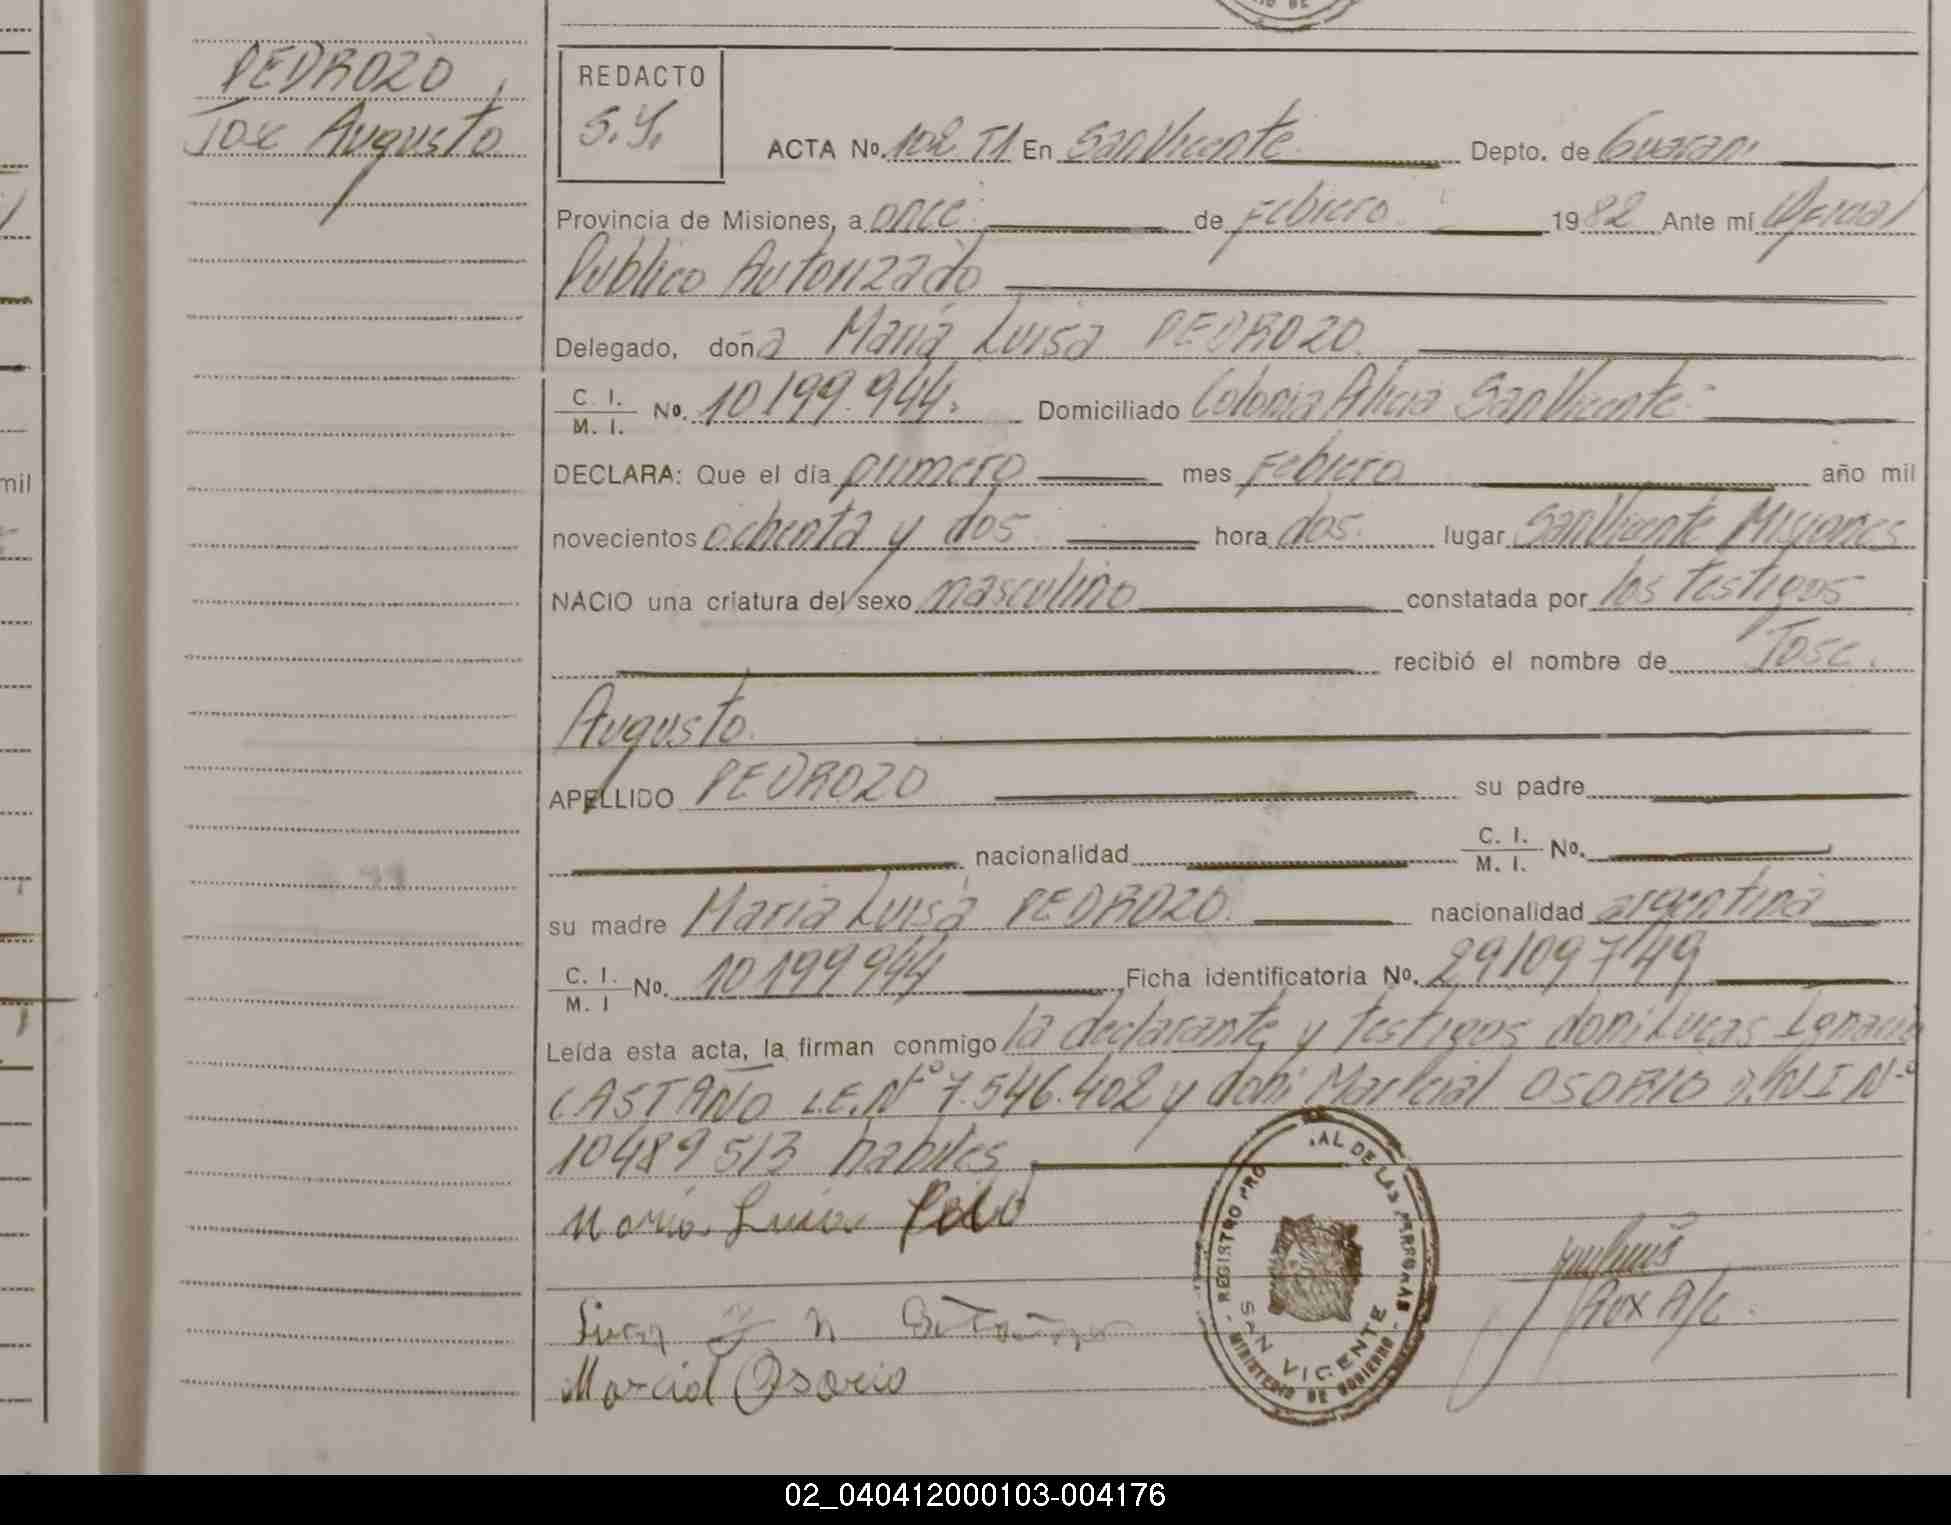 PEDROZO,
Jose Augusto
REDACTO
S.Y.
ACTA No. 102 T1 En San Vicente Depto. de Guarani
Provincia de Misiones, a once de Febrero 1982 Ante mí Oficial
Publico Autorizado
Delegado, doña Maria Luisa PEDROZO.
C. I. / M. I. No. 10199.944. Domiciliado Colonia Alicia San Vicente
DECLARA: Que el día primero mes Febrero año mil
novecientos ochenta y dos hora dos. lugar San Vicente Misiones
NACIO una criatura del sexo masculino constatada por los testigos
recibió el nombre de Jose
Augusto.
APELLIDO PEDROZO su padre
nacionalidad C. I. / M. I. No.
su madre Maria Luisa PEDROZO. nacionalidad argentina
C. I. / M. I No. 10199944 Ficha identificatoria No. 29109749
Leída esta acta, la firman conmigo la declarante y testigos don: Lucas Ignacio
CASTAÑO L.E.Nº 7.546.402 y don: Marcial OSORIO D.N.I Nº
10489513 habiles
Maria Luisa
Marcial Osorio
Aux A/C.
REGISTRO PRO AL DE LAS PERSONAS
SAN VICENTE
MINISTERIO DE GOBIERNO
mil
02_040412000103-004176